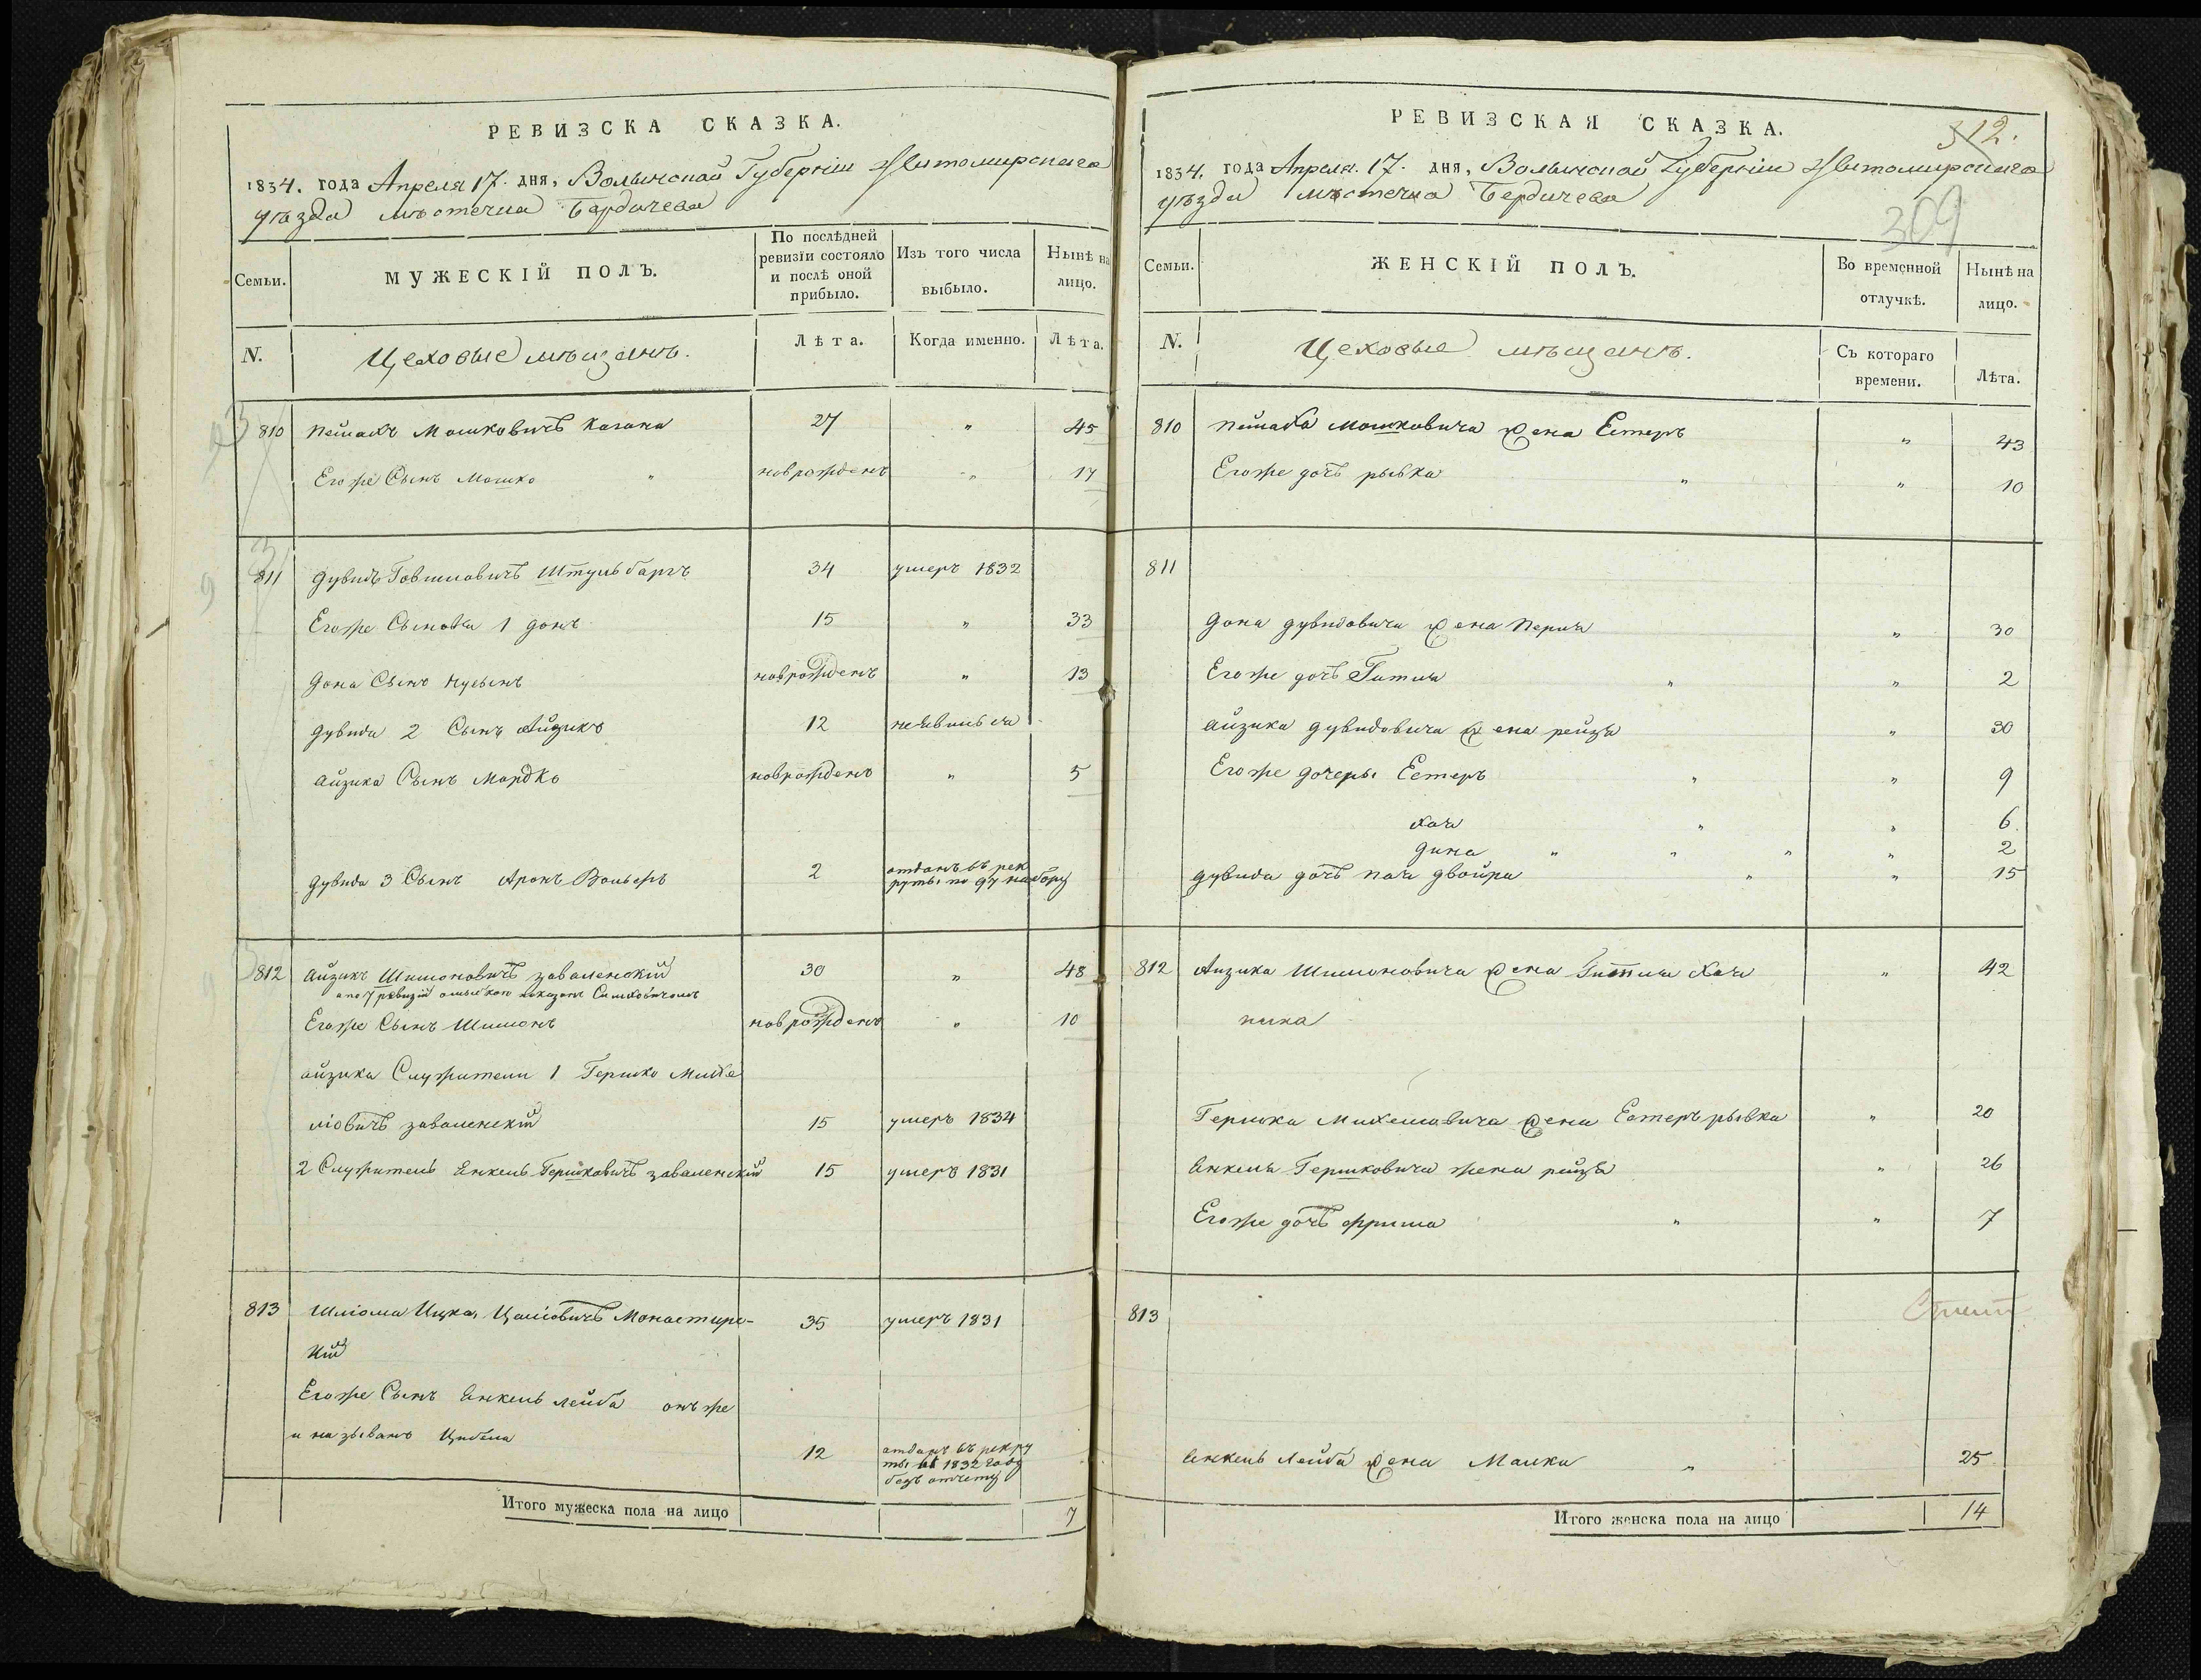 РЕВИЗСКА СКАЗКА.
1834. года Апреля 17. дня, Волынской Губернiи Житомирскаго
уѣзда мѣстечка Бердичева
Семьи.
МУЖЕСКIЙ ПОЛЪ.
По послѣдней
ревизiи состояло
и послѣ оной
прибыло.
Изъ того числа
выбыло.
Нынѣ на
лицо.
N.
Цеховые мѣщанъ.
Лѣта.
Когда именно.
Лѣта.
810 Пейсахъ Мошковичъ Кагана 27 " 45
Егоже Сынъ Мошко " новрожденъ " 17
811 Дувидъ Говшиовичъ Штульбаргъ 34 умеръ 1832
Егоже Сыновья 1 Донъ 15 " 33
Дона Сынъ Нусынъ новрожденъ " 13
Дувида 2 Сынъ Айзикъ 12 неявился
Айзика Сынъ Мордко новрожденъ " 5
Дувида 3 Сынъ Аронъ Вольфъ 2 отданъ въ рек
руты по 97 набору
812 Айзикъ Шимоновичъ Заваленскiй 30 " 48
а по 7 ревизiи показанъ
Егоже Сынъ Шимонъ новрожденъ " 10
Айзика Служители 1 Гершко Михе
лiовичъ Заваленскiй 15 умеръ 1834
2 Служитель Янкель Гершковичъ Заваленскiй 15 умеръ 1831
813 Шлiома Ицка Цалiовичъ Монастирс-
кiй 35 умеръ 1831
Егоже Сынъ Янкель Лейба онъ же
и называнъ 12 отданъ въ рекру
ты въ 1832 году
безъ отчету
Итого мужеска пола на лицо 7
РЕВИЗСКАЯ СКАЗКА.
312.
1834. года Апреля 17. дня, Волынской Губернiи Житомирскаго
уѣзда мѣстечка Бердичева
309
Семьи.
ЖЕНСКIЙ ПОЛЪ.
Во временной
отлучкѣ.
Нынѣ на
лицо.
N.
Цеховые мѣщанъ.
Съ котораго
времени.
Лѣта.
810 Пейсаха Мошковича жена Естеръ " 43
Егоже дочь Рывка " " 10
811
Дона Дувидовича жена Перля " 30
Егоже дочь Гитля " " 2
Айзика Дувидовича жена Рейзя " 30
Егоже дочеры Естеръ " " 9
Хая " " 6.
Дина " " " " 2
Дувида дочь Хая Двойра " " 15
812 Аизика Шимоновича жена Гитля Хая " 42
нька
Гершка Михелiовича жена Естеръ Рывка " 20
Янкеля Гершковича жена Рейзя " 26
Егоже дочь Фрима " " 7
813
Янкель Лейба жена Малка " 25
Итого женска пола на лицо 14